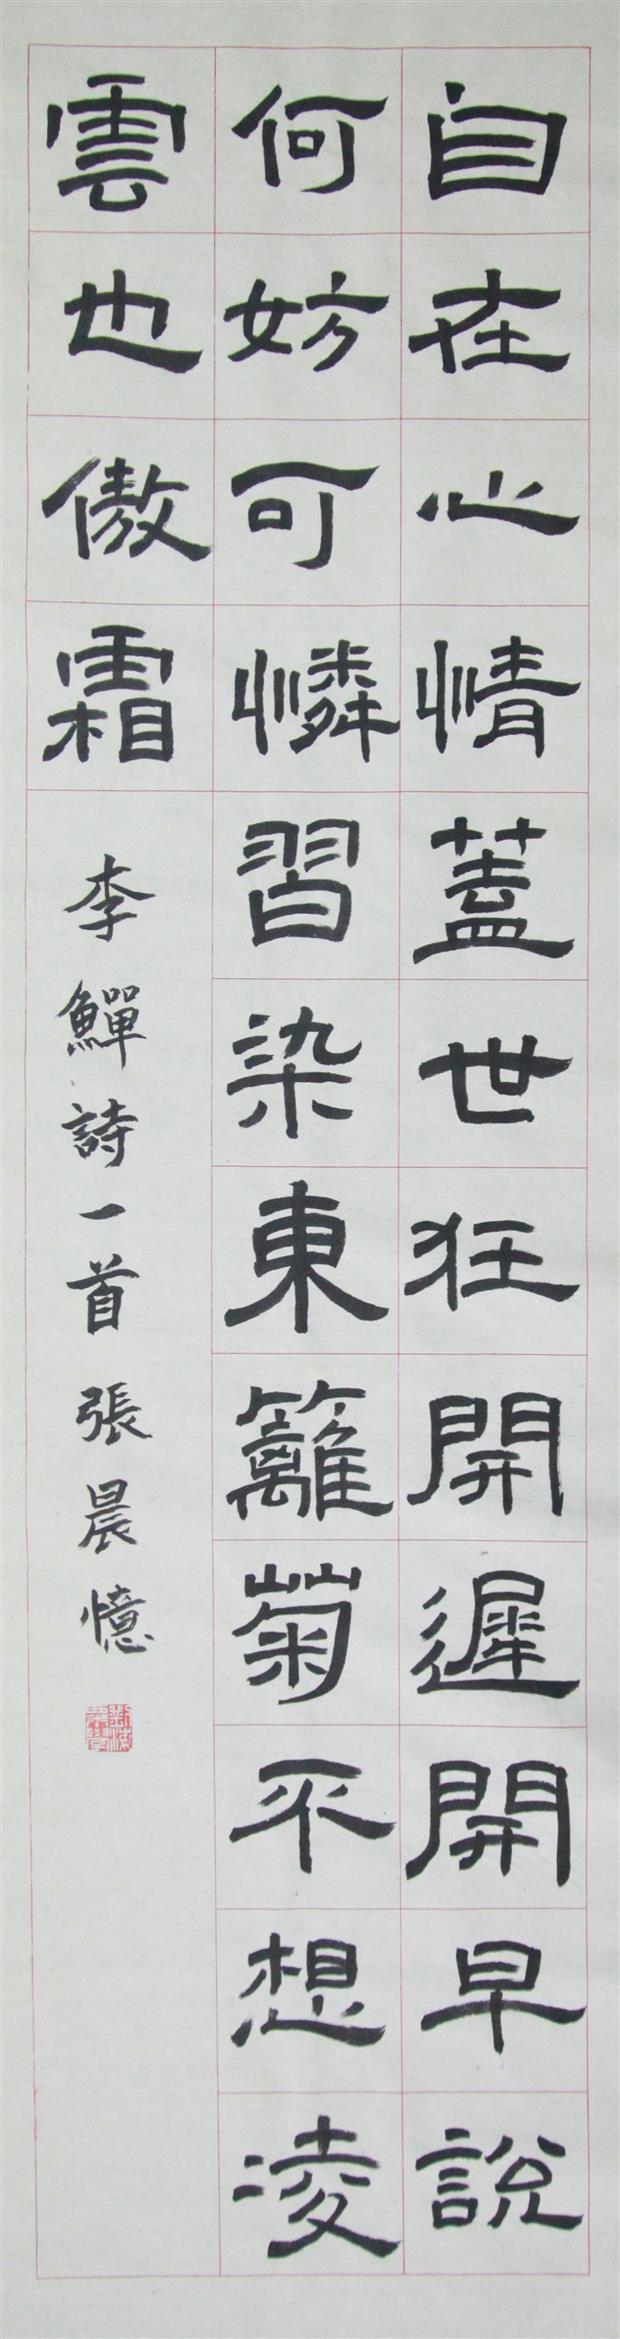 自在心情蓋世狂開遲開早說
何妨可憐習染東籬菊不想凌
雲也傲霜
李鱓詩一首 張晨憶